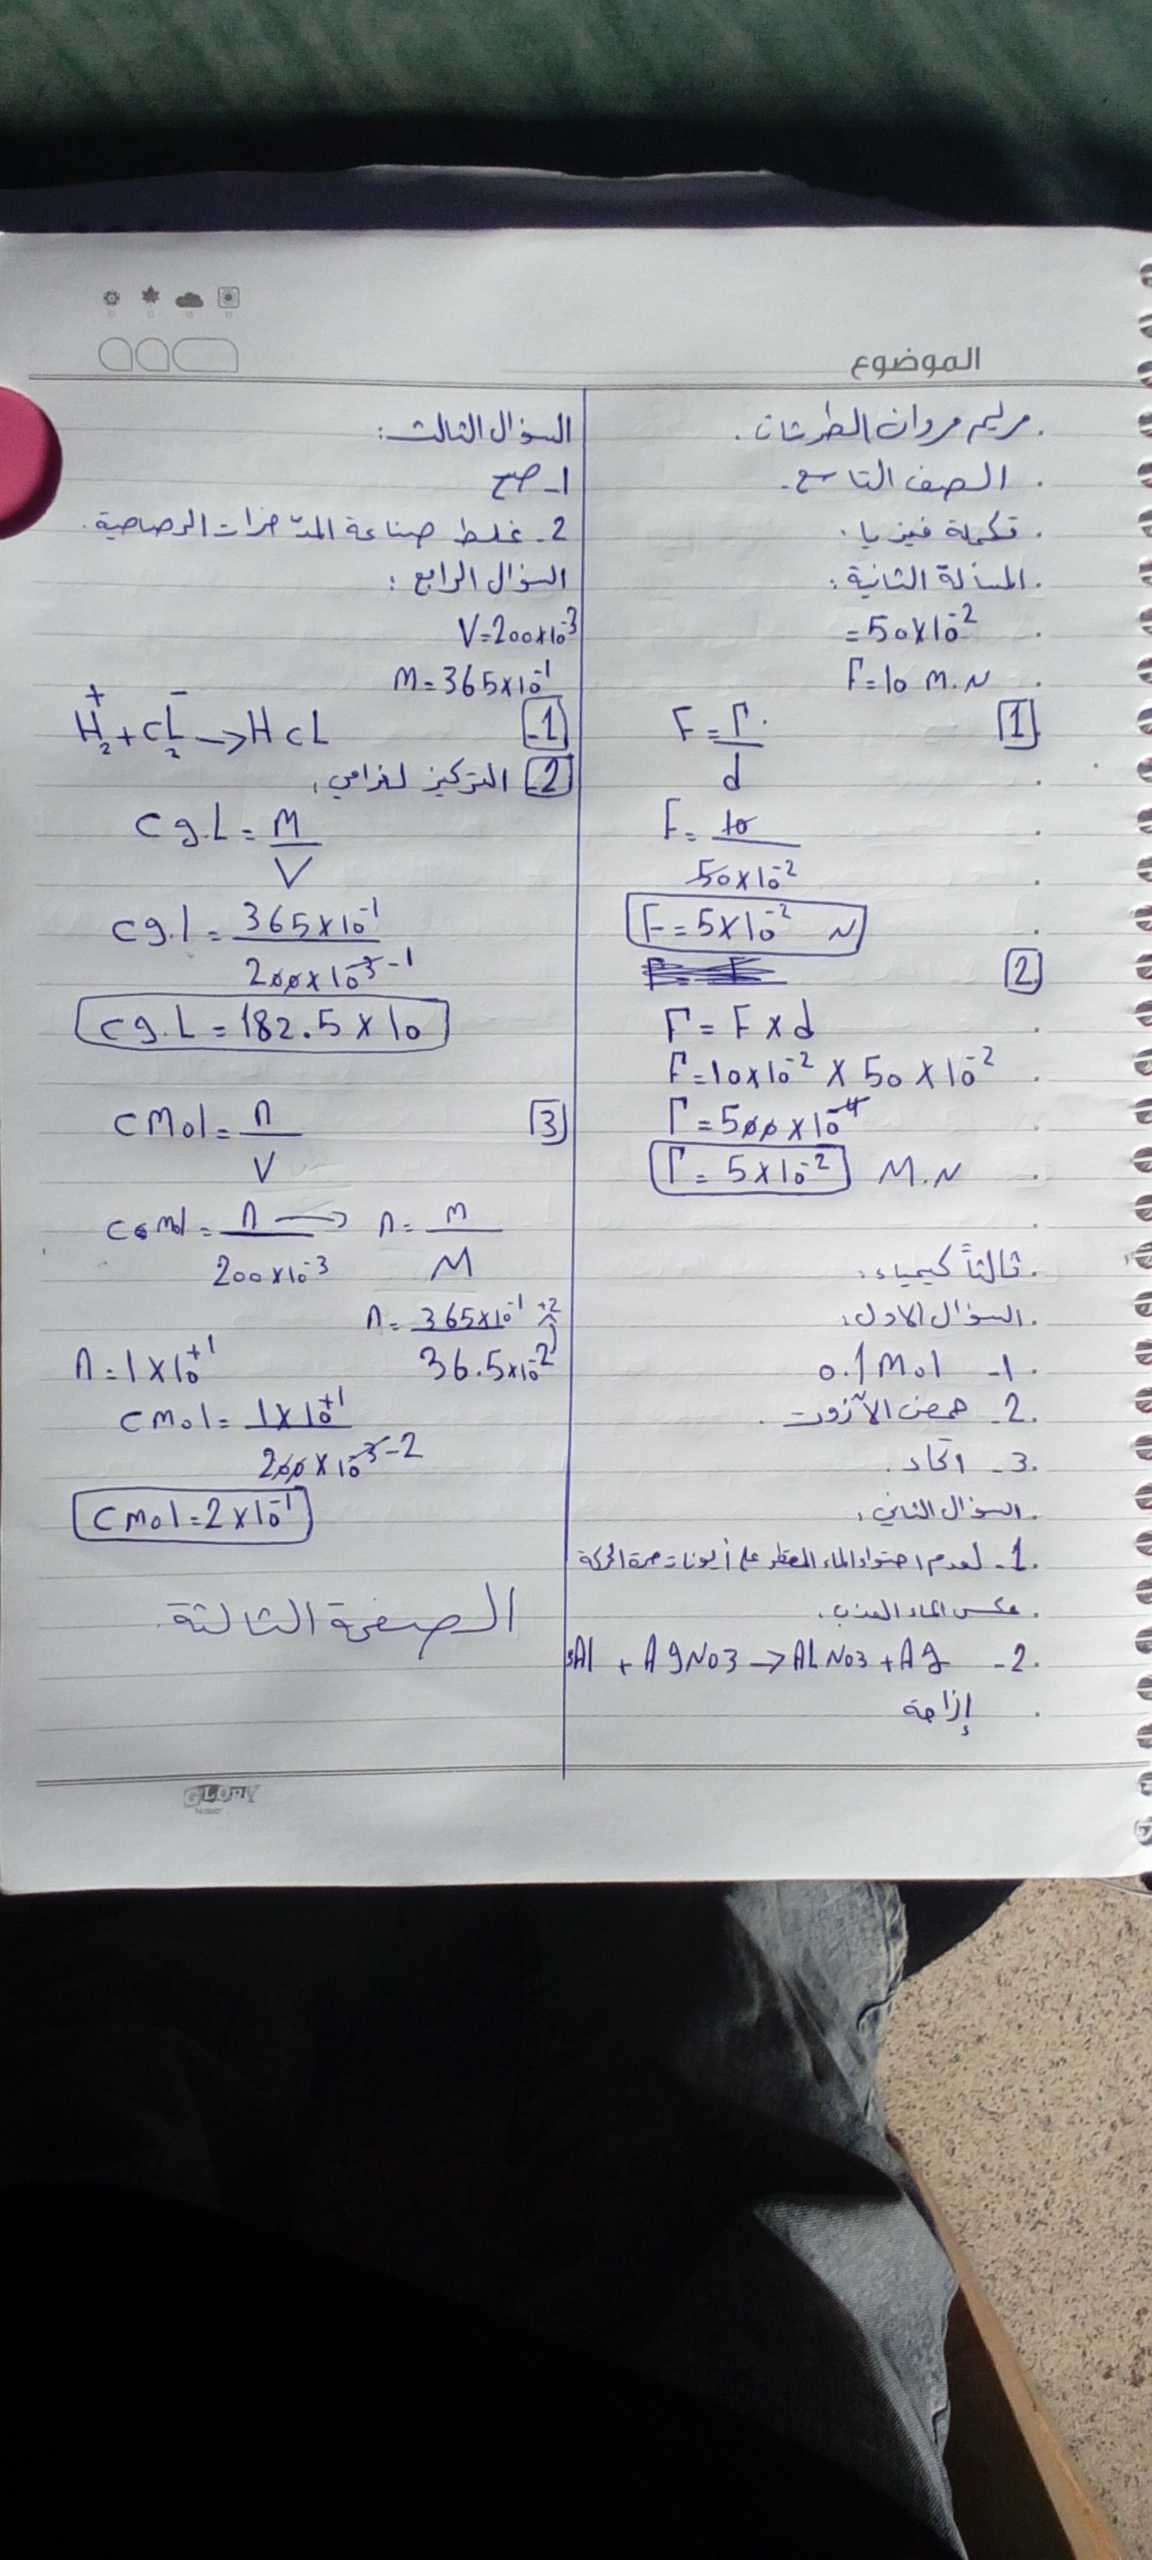 الموضوع
مريم مروان الطرشان.
الصف التاسع.
تكملة فيزيا.
المسألة الثانية:
=50x10⁻²
Γ=10 m.N
1
F = Γ / d
F = 10 / 50x10⁻²
F = 5x10⁻² N
2
Γ = F x d
Γ = 10x10⁻² x 50x10⁻²
Γ = 500 x 10⁻⁴
Γ = 5x10⁻² M.N
ثالثاً كيمياء:
السؤال الاول:
1- 0.1 Mol
2- حمض الآزوت.
3- اتحاد.
السؤال الثاني:
1- لعدم احتواء الماء المقطر على أيونات حرة الحركة
عكس الماء العذب.
2- Al + AgNO3 → AlNO3 + Ag
إزاحة
السؤال الثالث:
1- صح
2- غلط صناعة المدّخرات الرصاصية.
السؤال الرابع:
V=200x10⁻³
m=365x10⁻¹
1- H₂⁺ + cL₂⁻ → HcL
2- التركيز لغرامي:
cg.L = m / V
cg.l = 365x10⁻¹ / 200x10⁻³ -1
cg.L = 182.5 x 10
3 cmol = n / V
cmol = n / 200x10⁻³ → n = m / M
n = 365x10⁻¹ +2 / 36.5x10⁻²
n = 1x10⁺¹
cmol = 1x10⁺¹ / 200x10⁻³ -2
cmol = 2x10⁻¹
الصفحة الثالثة.
GLORY